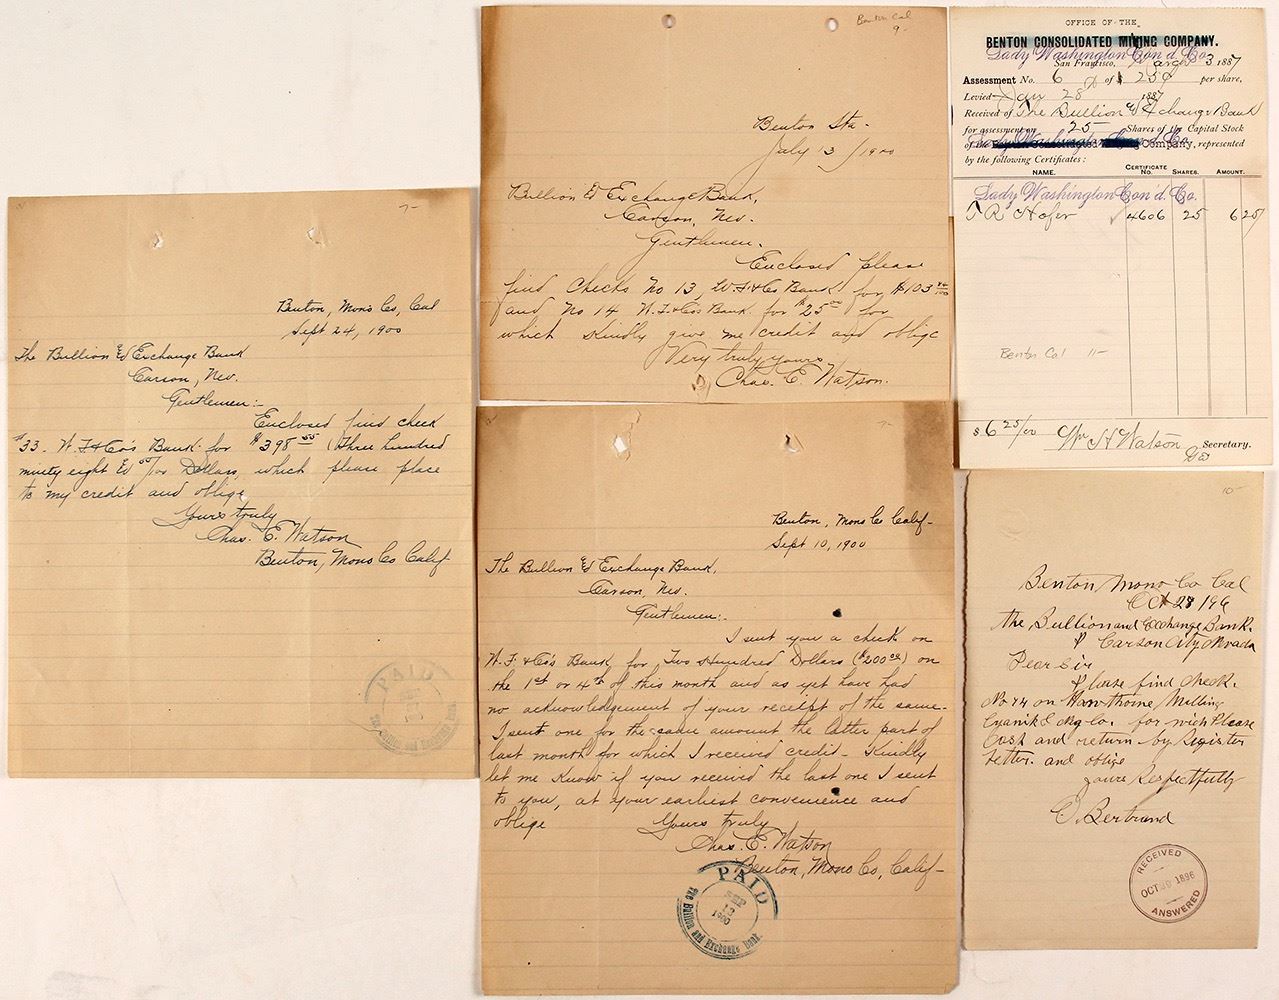 7-
Benton, Mono Co, Cal
Sept 24, 1900
The Bullion & Exchange Bank
Carson, Nev.
Gentlemen:-
Enclosed find check
#33. W. F. & Co's Bank for $398 55 (Three hundred
ninety eight & 55/00 Dollars, which please place
to my credit and oblige
Yours truly
Chas. E. Watson
Benton, Mono Co Calif
PAID
The Bullion and Exchange Bank.
Benton Cal
9-
Benton Sta-
July 13/1900
Bullion & Exchange Bank,
Carson, Nev.
Gentlemen.
Enclosed please
find Checks No 13 W. F. & Co Bank for $103
and No 14 W. F. & Co's Bank for $25 00 for
which kindly give me credit and oblige
Very truly yours
Chas. E. Watson.
7-
Benton, Mono Co Calif-
Sept 10, 1900
The Bullion & Exchange Bank,
Carson, Nev.
Gentlemen:-
I sent you a check on
W. F. & Co's Bank for Two Hundred Dollars ($200 00) on
the 1st or 4th of this month and as yet have had
no acknowledgement of your receipt of the same-
I sent one for the same amount the latter part of
last month for which I received credit- Kindly
let me know if you received the last one I sent
to you, at your earliest convenience and
oblige
Yours truly
Chas. E. Watson
Benton, Mono Co, Calif-
PAID
SEP
12
1900
The Bullion and Exchange Bank.
OFFICE OF THE
BENTON CONSOLIDATED MINING COMPANY.
Lady Washington Con'd. Co.
San Francisco, March 3 1887
Assessment No. 6 of $ 25¢ per share,
Levied Jan 28 1887
Received of The Bullion & Exchange Bank
for assessment on 25 Shares of the Capital Stock
of the Lady Washington Con'd. Co. Company, represented
by the following Certificates:
NAME. CERTIFICATE No. SHARES. AMOUNT.
Lady Washington Con'd. Co.
T R Hofer 4606 25 6 25
Benton Cal 11-
$ 6 25/00 Wm H Watson Secretary.
10-
Benton Mono Co Cal
Oct 28/96
the Bullion and Exchange Bank.
Carson City Nevada
Dear Sir
Please find check.
No 74 on Hawthorne Milling
Cyanide Mg Co. for wich Please
Cash and return by Register
Letter. and oblige
yours Respectfully
O. Bertrand
RECEIVED
OCT 29 1896
ANSWERED